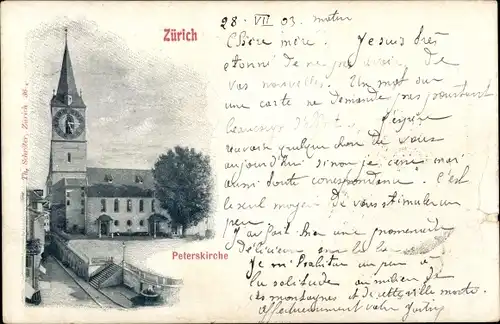 Zürich
Peterskirche
28 . VII 03. matin
Chère mère. Je suis très
étonné de ne pas avoir de
vos nouvelles. Un mot sur
une carte ne demande pas pourtant
beaucoup
quelque de vous
aujourd'hui sinon je cesse moi
aussi toute correspondance. C'est
le seul moyen de vous stimuler un
peu
J'ai fait hier une promenade
délicieuse sur le lac
Je m'habitue un peu à
la solitude au milieu de
ces montagnes et de cette ville morte.
Affectueusement votre